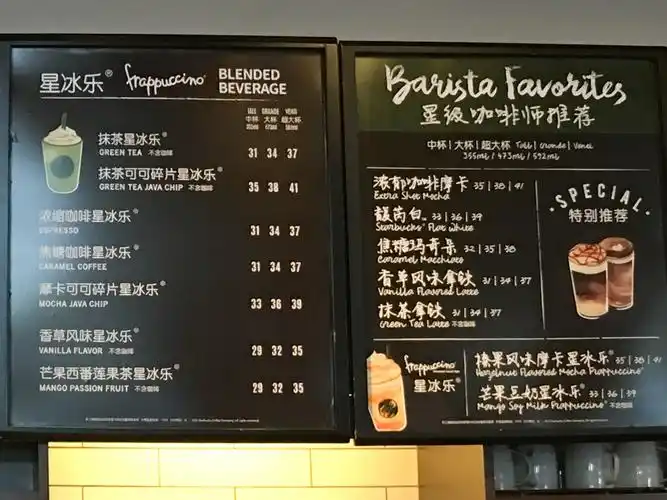 星冰乐® frappuccino® BLENDED BEVERAGE
TALL GRANDE VENTI
中杯 大杯 超大杯
355ml 473ml 592ml
抹茶星冰乐®
GREEN TEA 不含咖啡 31 34 37
抹茶可可碎片星冰乐®
GREEN TEA JAVA CHIP 不含咖啡 35 38 41
浓缩咖啡星冰乐®
ESPRESSO 31 34 37
焦糖咖啡星冰乐®
CARAMEL COFFEE 31 34 37
摩卡可可碎片星冰乐®
MOCHA JAVA CHIP 33 36 39
香草风味星冰乐®
VANILLA FLAVOR 不含咖啡 29 32 35
芒果西番莲果茶星冰乐®
MANGO PASSION FRUIT 不含咖啡 29 32 35
Barista Favorites
星级咖啡师推荐
中杯 | 大杯 | 超大杯 Tall | Grande | Venti
355ml / 473ml / 592ml
浓郁咖啡摩卡 35 | 38 | 41
Extra Shot Mocha
馥芮白™ 33 | 36 | 39
Starbucks® Flat White
焦糖玛奇朵 32 | 35 | 38
Caramel Macchiato
香草风味拿铁 31 | 34 | 37
Vanilla Flavored Latte
抹茶拿铁 31 | 34 | 37
Green Tea Latte 不含咖啡
·SPECIAL·
特别推荐
frappuccino
星冰乐®
榛果风味摩卡星冰乐® 35 | 38 | 41
Hazelnut Flavored Mocha Frappuccino®
芒果豆奶星冰乐® 33 | 36 | 39
Mango Soy Milk Frappuccino® 不含咖啡